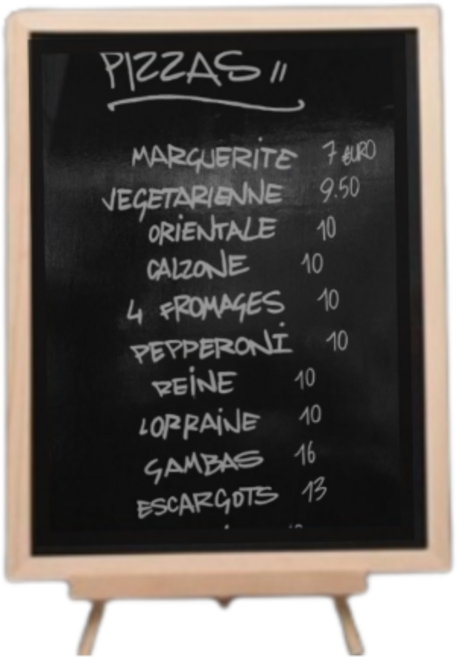 PIZZAS
MARGUERITE 7 EURO
VEGETARIENNE 9.50
ORIENTALE 10
CALZONE 10
4 FROMAGES 10
PEPPERONI 10
REINE 10
LORRAINE 10
GAMBAS 16
ESCARGOTS 13